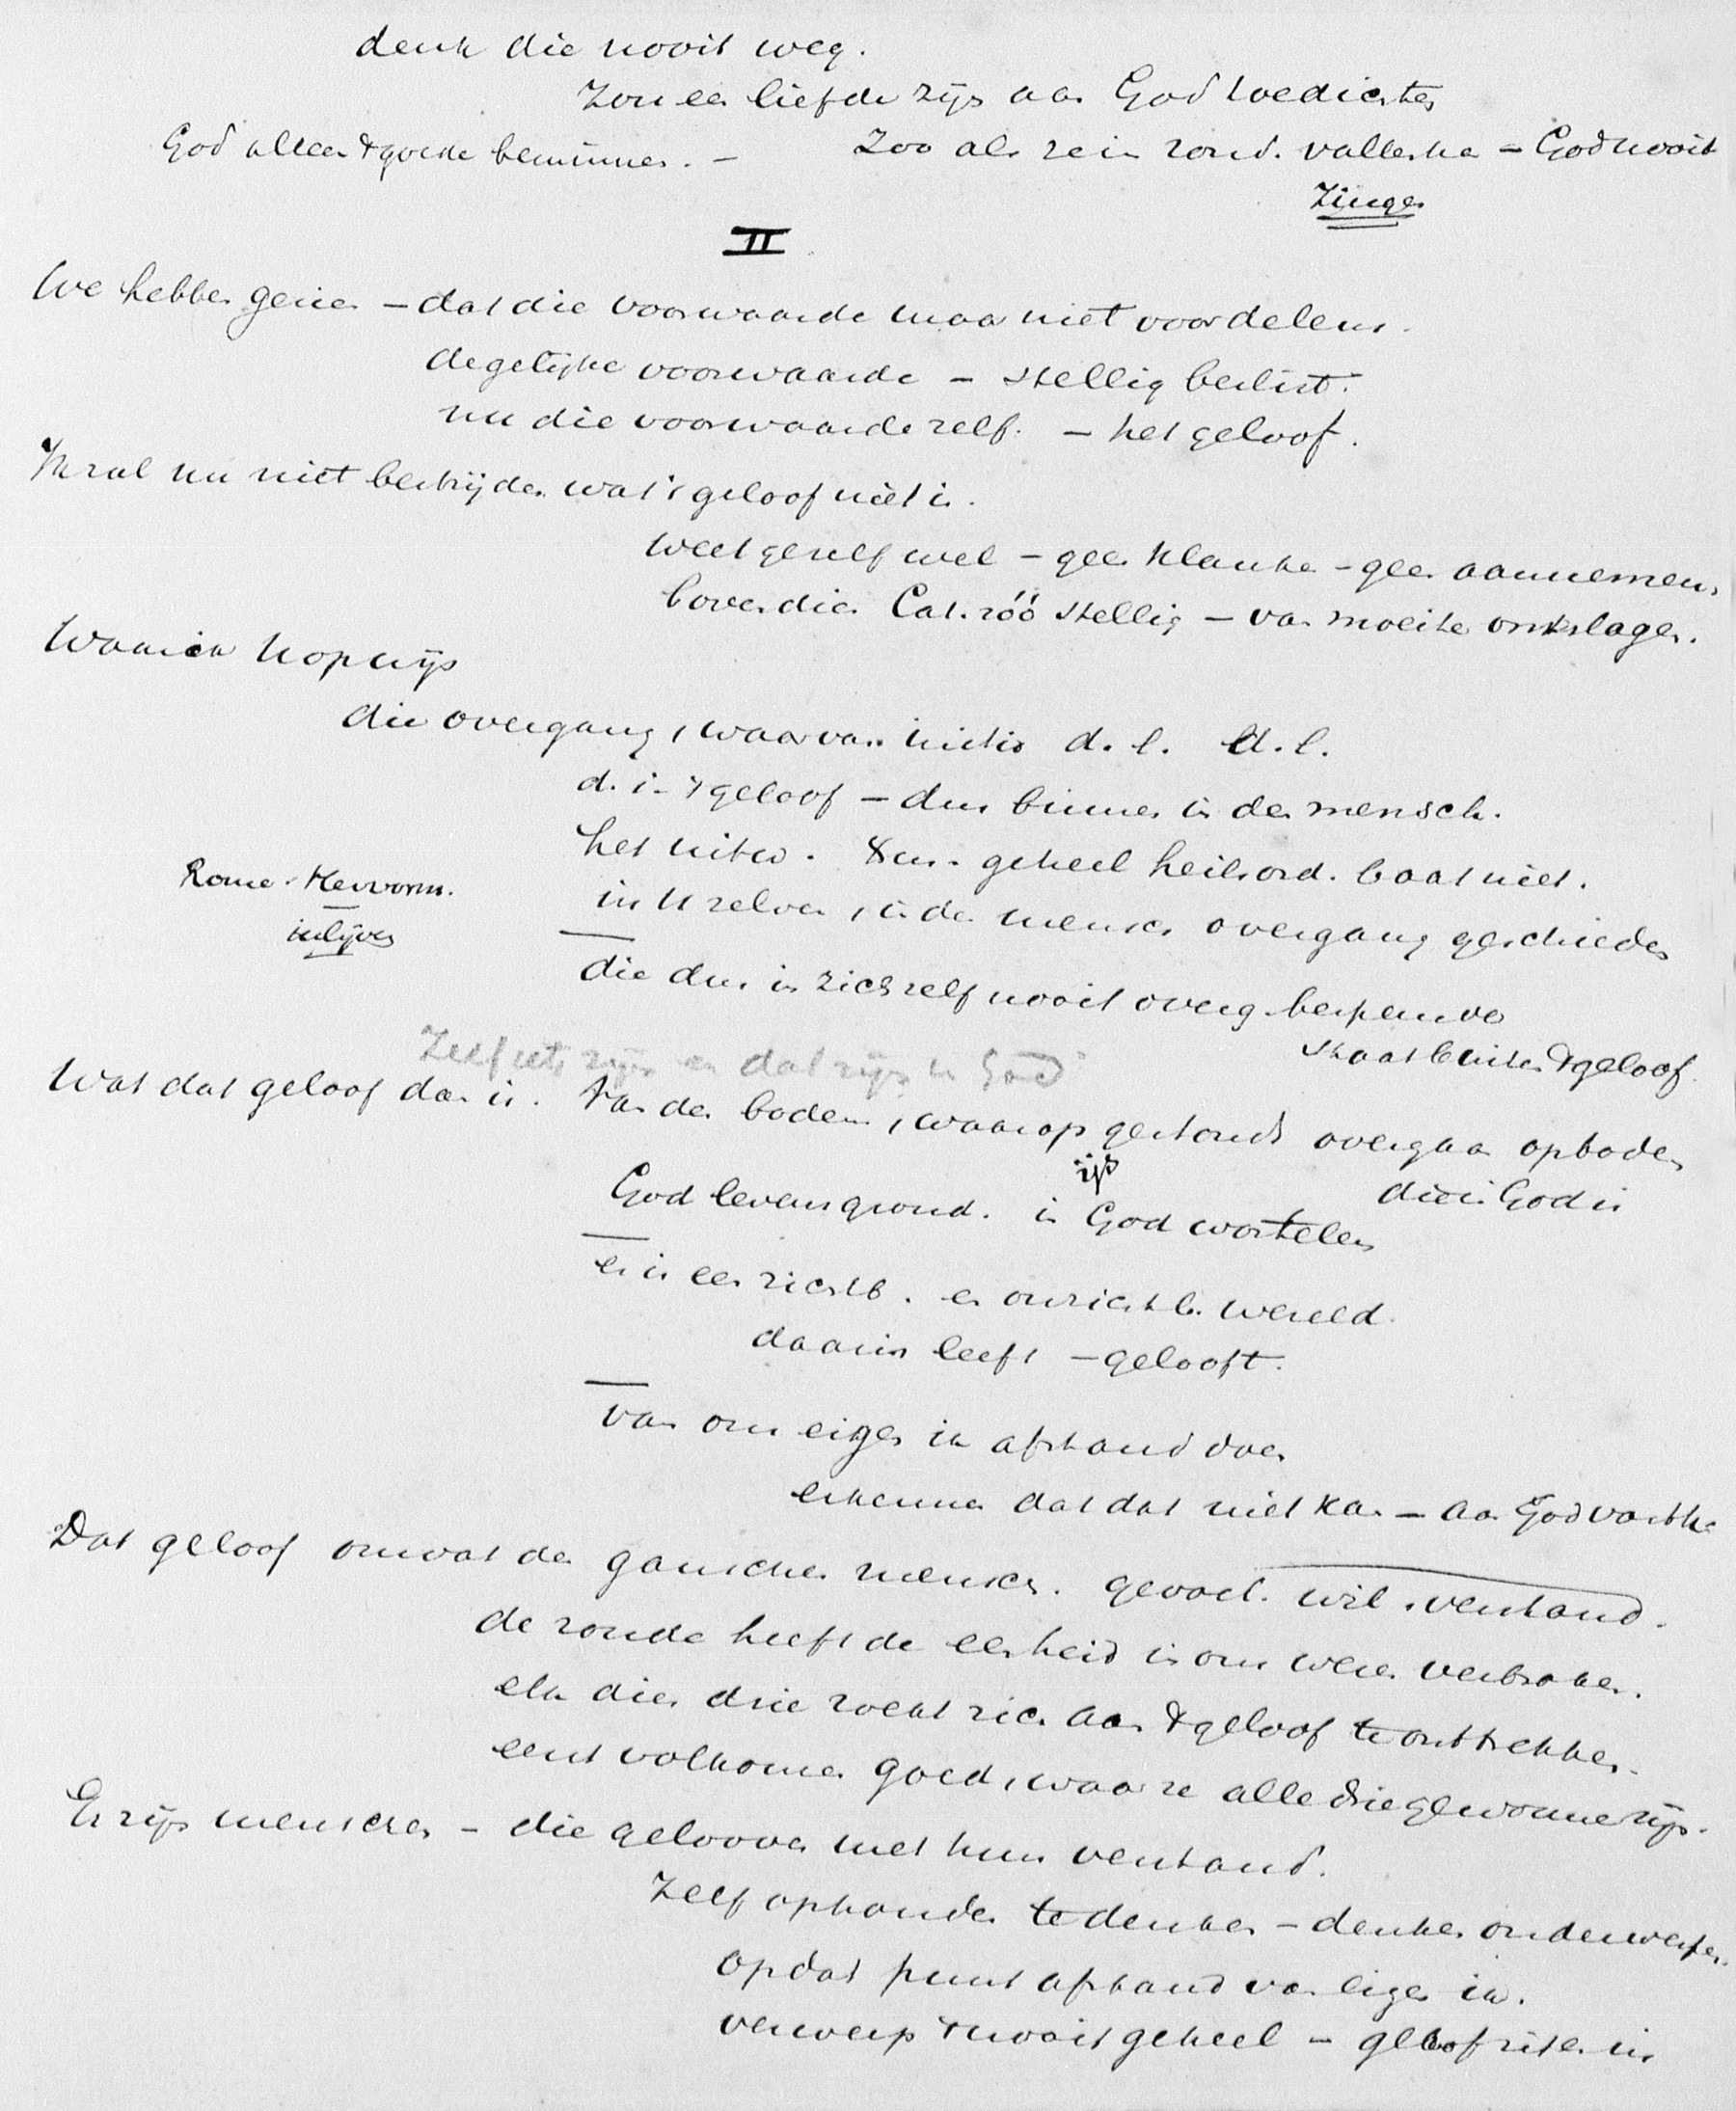 denk die nooit weg.
Zou een liefde zijn aan God toedichten
God alleen 't goede beminnen. – Zoo als ze in zond. vallen ka – God nooit
Zingen
II
We hebben gezien – dat die voorwaarde maar niet voordelens.
degelijke voorwaarde – stellig beslist.
nu die voorwaarde zelf. – het geloof.
Ik zal nu niet bestrijden wat 't geloof niet is.
weet ge zelf wel – geen klanke – geen aannemen,
bovendien Cat. zóó stellig – van moeite ontslagen.
Waarin
die overgang, waarvan d. l. d. l.
d. i. 't geloof – dus binnen in den mensch.
het uitw. geheel heilsord. baat niet.
Rome. Hervorm.
inlijven
in U zelven, in den mensch overgang geschieden
die dus in zichzelf nooit overg. bespeurde
staat buiten 't geloof.
Zelf iets zijn en dat zijn in God
Wat dat geloof dan is. Van den bodem, waarop gestond overgaan op bodem
die in God is
God levensgrond. in God wortelen
er is een zichtb. en onzichtb. wereld.
daarin leeft – gelooft.
van ons eigen ik afstand doen
erkennen dat dat niet kan – aan God vasthe
Dat geloof omvat den ganschen mensch. gevoel. wil. verstand.
de zonde heeft de eenheid in ons wezen verbroken.
elk dier drie zoekt zich aan 't geloof te onttrekken.
eerst volkomen goed, waar ze alle drie gewonnen zijn.
Er zijn menschen – die gelooven met hun verstand.
Zelf ophouden te denken – denken onderwerpen.
op dat punt afstand van eigen ik.
verwerp 't nooit geheel – geloof zit er in